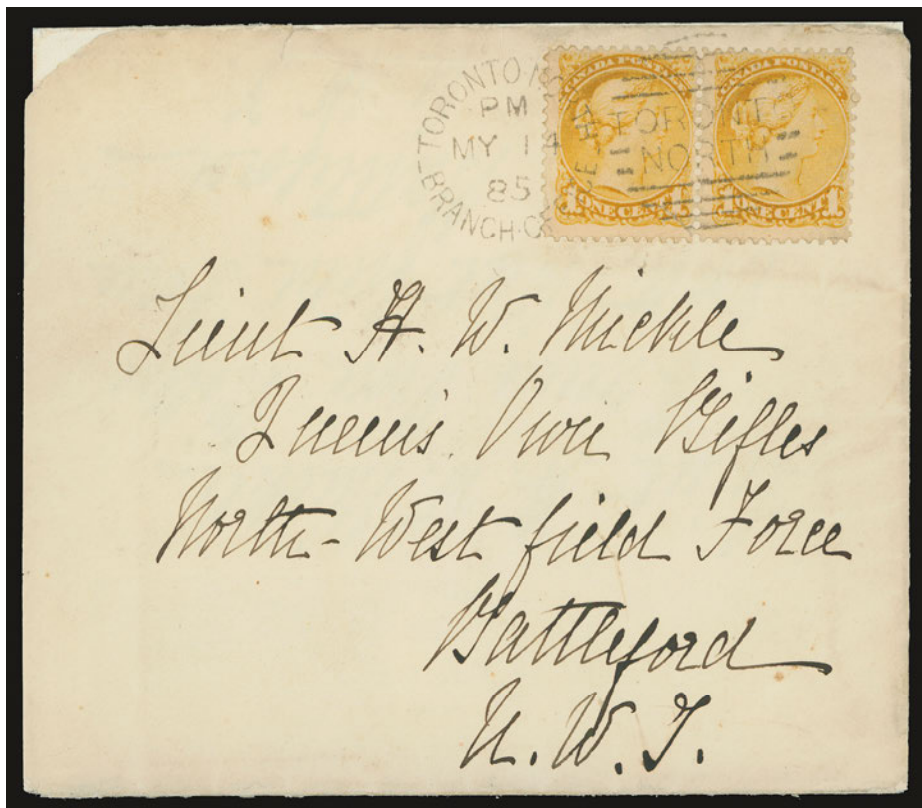 TORONTO
PM
MY 14
85
BRANCH
TORONT
NORTH
CANADA POSTAGE
1 ONE CENT 1
CANADA POSTAGE
1 ONE CENT 1
Lieut H. W. Mickle
Queen's Own Rifles
North-West field Force
Battleford
N. W. T.